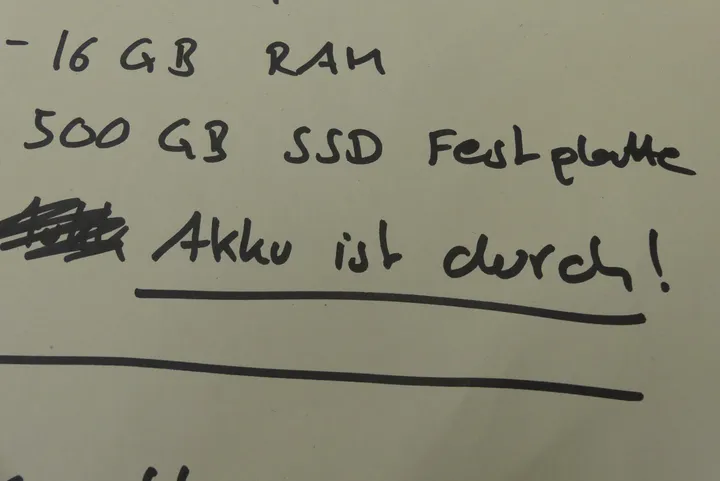 - 16 GB RAM
500 GB SSD Festplatte
Akku ist durch!